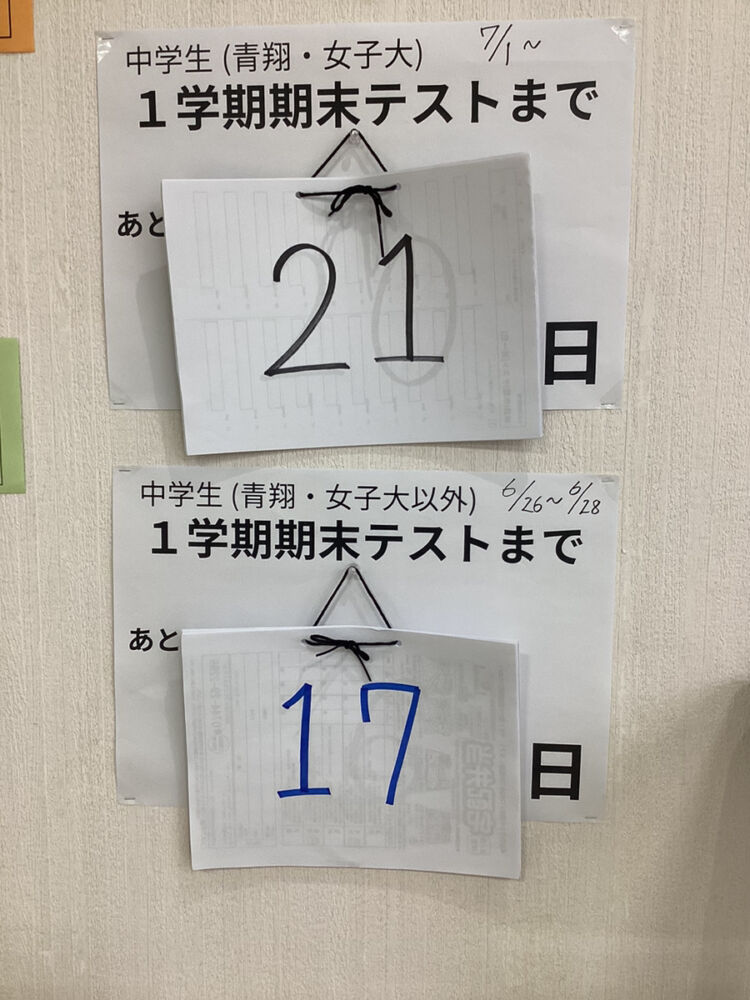 中学生 (青翔・女子大) 7/1~
1学期期末テストまで
あと
21
日
中学生 (青翔・女子大以外) 6/26~6/28
1学期期末テストまで
あと
17
日